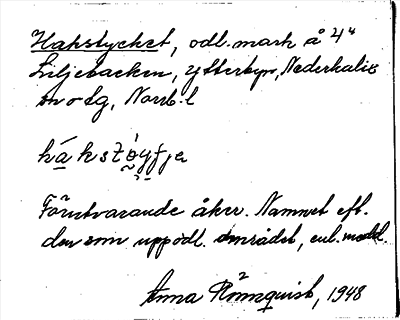 Hakstycket, odl. mark å 4⁴
Liljebacken, Ytterbyn, Nederkalix
sn o tg, Norrb. l
hákstø̀yfje
Förutvarande åker. Namnet eft.
den som uppodl. området, enl. medd.
Anna Rönnquist, 1948